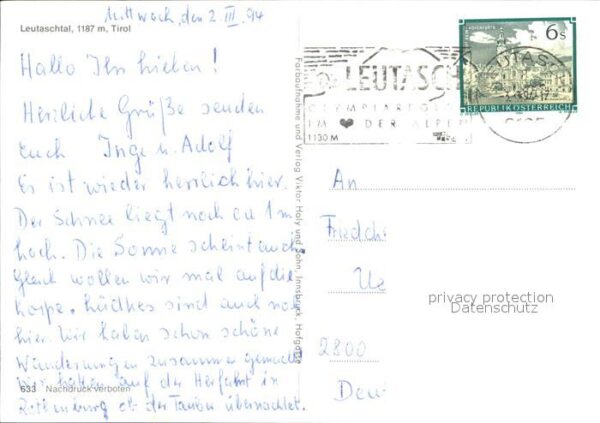 Mittwoch, den 2. III. 94
Leutaschtal, 1187 m, Tirol
Hallo Ihr Lieben!
Herzliche Grüße senden
Euch Inge u. Adolf
Es ist wieder herrlich hier.
Der Schnee liegt noch ca 1 m
hoch. Die Sonne scheint auch.
Gleich wollen wir mal auf die
sind auch
hier. Wir haben schon schöne
Wanderungen zusammen gemacht
Wir haben auf der Herfahrt in
Rothenburg ob der Tauber übernachtet.
633 Nachdruck verboten
Farbaufnahme und Verlag Viktor Holy und Sohn, Innsbruck, Hofgasse
LEUTASCH
OLYMPIAREGION
IM ❤ DER ALPEN
1130 M
LEUTASCH
6105
6 S
REPUBLIK ÖSTERREICH
An
Friedch
Ue
privacy protection
Datenschutz
2800
Deu